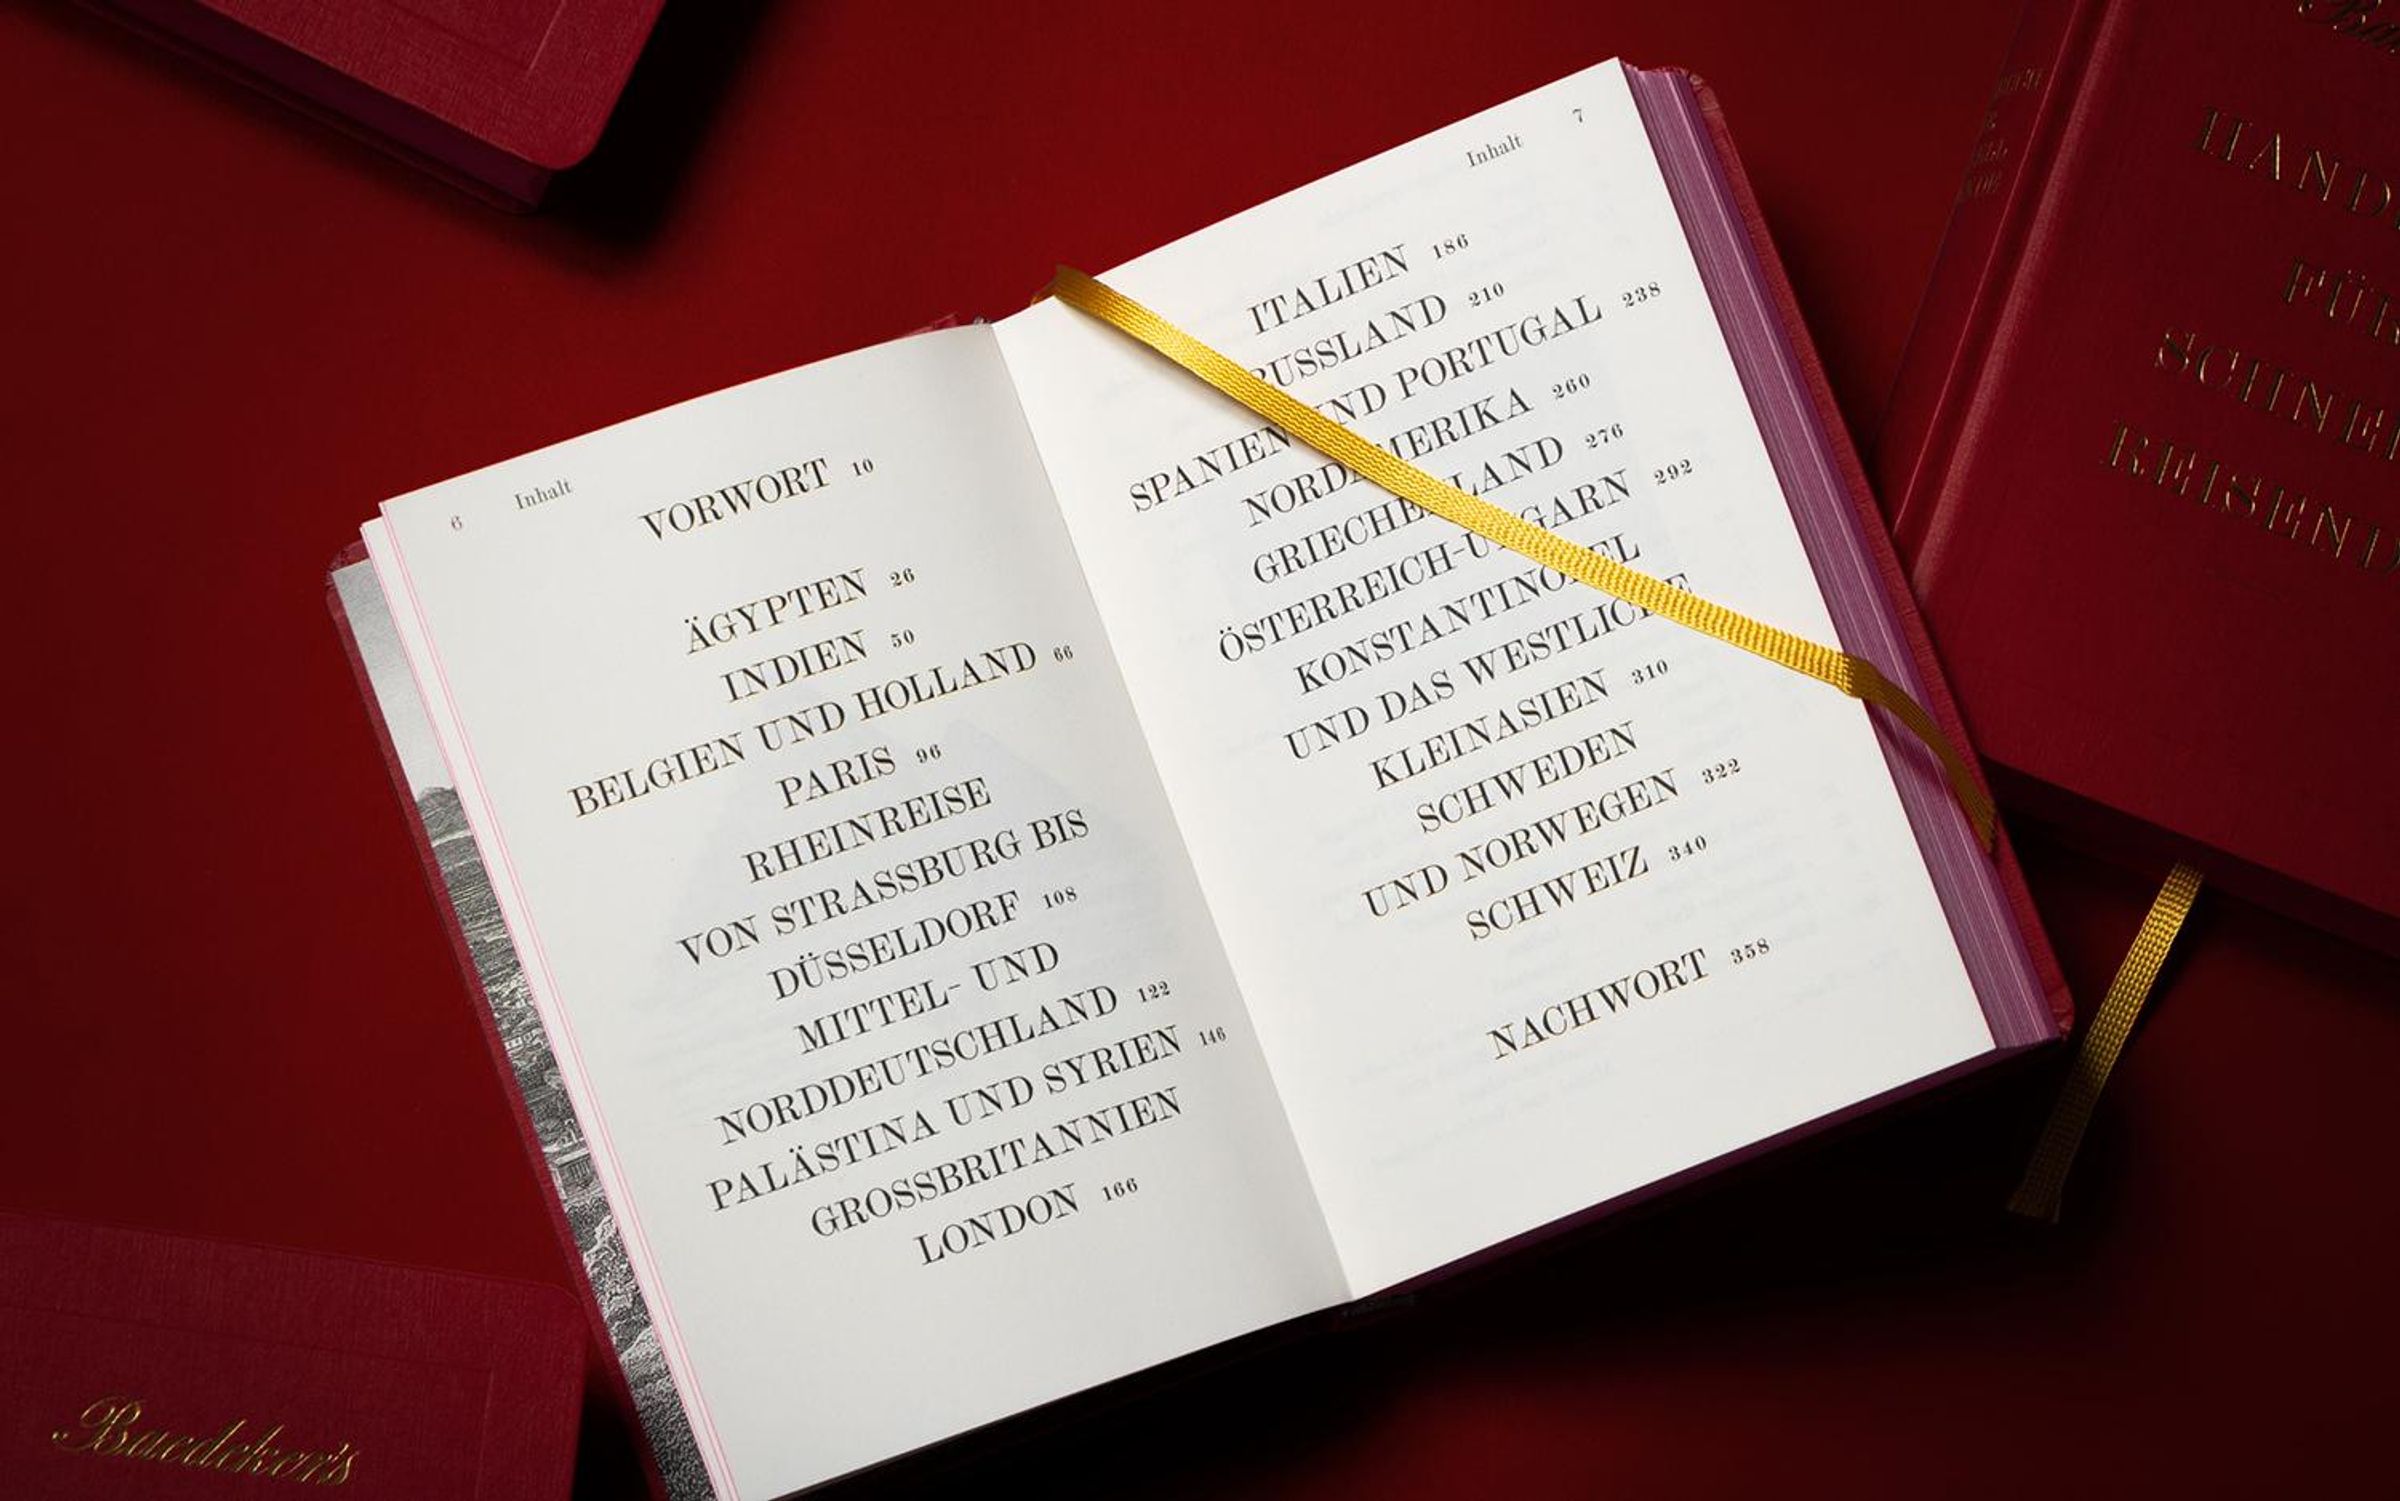 6 Inhalt
VORWORT 10
ÄGYPTEN 26
INDIEN 50
BELGIEN UND HOLLAND 66
PARIS 96
RHEINREISE
VON STRASSBURG BIS
DÜSSELDORF 108
MITTEL- UND
NORDDEUTSCHLAND 122
PALÄSTINA UND SYRIEN 146
GROSSBRITANNIEN
LONDON 166
Inhalt 7
ITALIEN 186
RUSSLAND 210
SPANIEN UND PORTUGAL 238
NORDAMERIKA 260
GRIECHENLAND 276
ÖSTERREICH-UNGARN 292
KONSTANTINOPEL
UND DAS WESTLICHE
KLEINASIEN 310
SCHWEDEN
UND NORWEGEN 322
SCHWEIZ 340
NACHWORT 358
Baedeker's
HAND
FÜR
SCHNE
REISEND